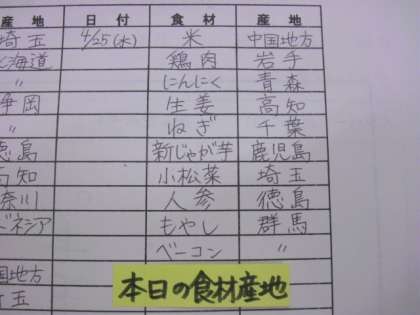 産地 日付 食材 産地
埼玉 4/25(水) 米 中国地方
北海道 鶏肉 岩手
〃 にんにく 青森
静岡 生姜 高知
〃 ねぎ 千葉
徳島 新じゃが芋 鹿児島
高知 小松菜 埼玉
奈川 人参 徳島
ドネシア もやし 群馬
ベーコン 〃
国地方
玉
本日の食材産地